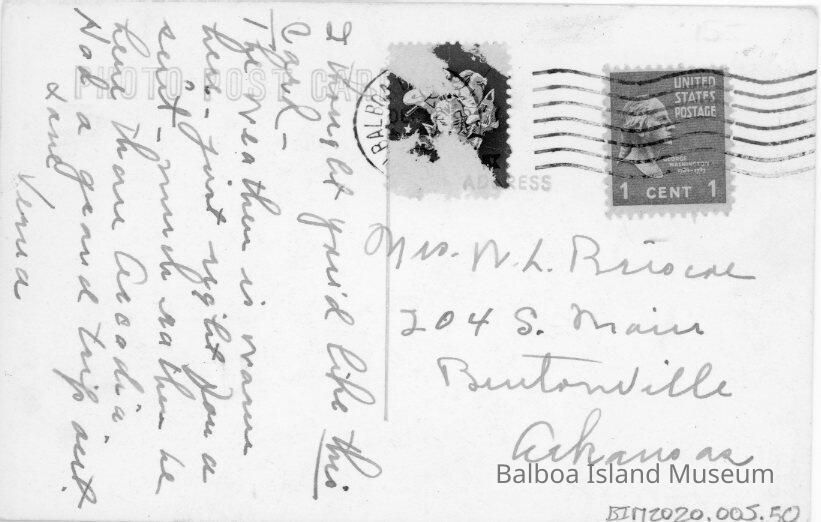 I thought you'd like this
Card -
The weather is warm
here - just right for a
suit - much rather be
here than Arcadia
Had a grand trip out
Love
Verna
PHOTO POST CARD
ADDRESS
BALBOA
UNITED
STATES
POSTAGE
GEORGE
WASHINGTON
1 CENT 1
Mrs. W. L. Briscoe
204 S. Main
Bentonville
Arkansas
Balboa Island Museum
BIM2020.005.50